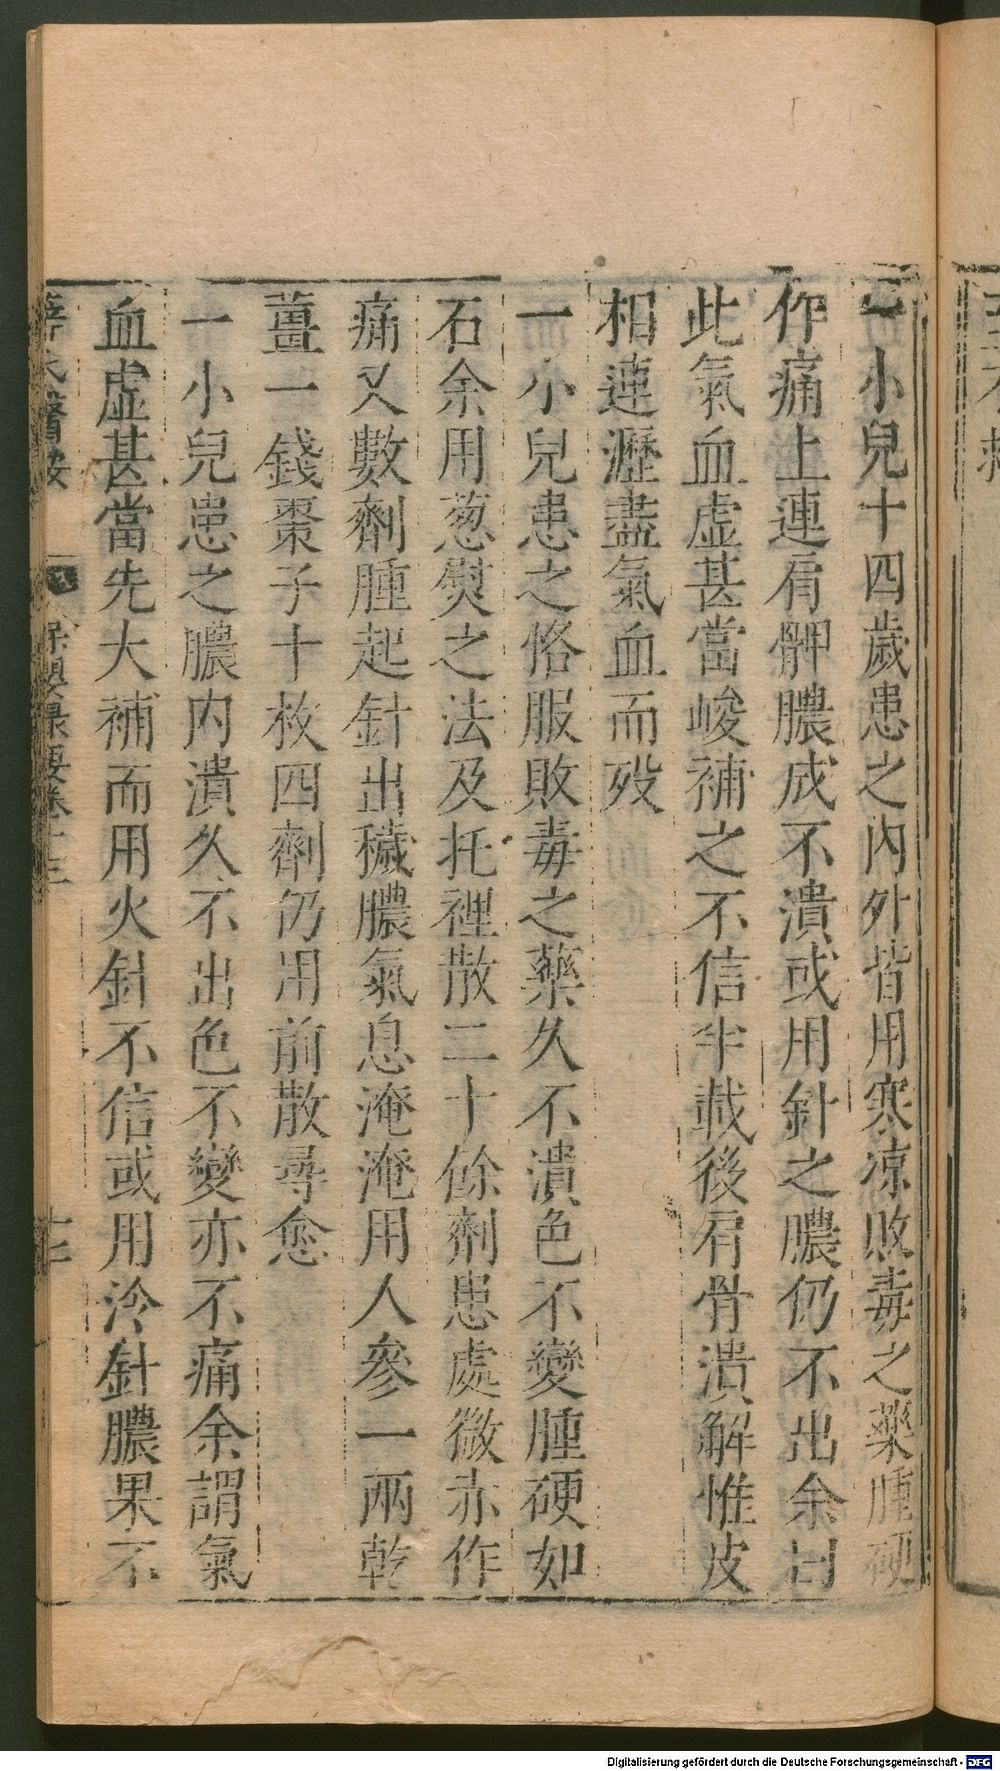 一小兒十四歲患之內外皆用寒凉敗毒之藥腫硬
作痛上連肩胛膿成不潰或用針之膿仍不出余曰
此氣血虛甚當峻補之不信半載後肩骨潰解惟皮
相連瀝盡氣血而歿
一小兒患之恪服敗毒之藥久不潰色不變腫硬如
石余用葱熨之法及托裡散二十餘劑患處微赤作
痛又數劑腫起針出穢膿氣息淹淹用人參一兩乾
薑一錢棗子十枚四劑仍用前散尋愈
一小兒患之膿內潰久不出色不變亦不痛余謂氣
血虛甚當先大補而用火針不信或用冷針膿果不
薛氏醫按 保嬰撮要卷十三 十二
Digitalisierung gefördert durch die Deutsche Forschungsgemeinschaft - DFG